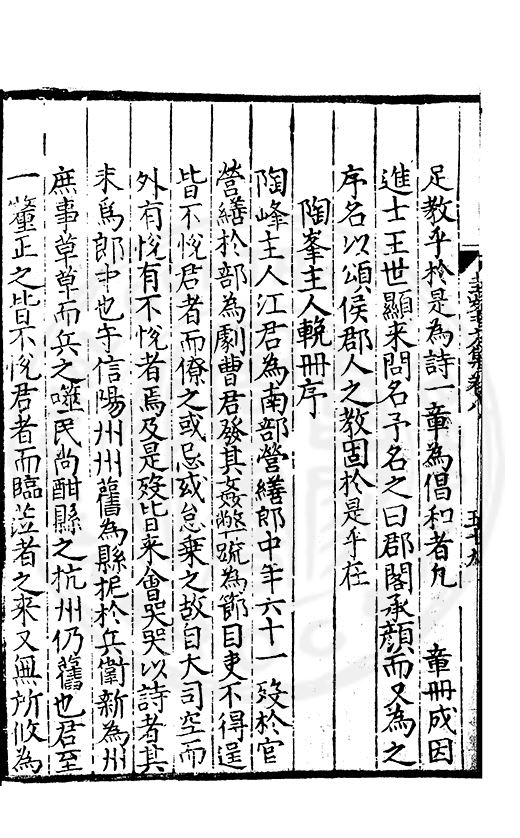 足教乎於是為詩一章為倡和者凡　章冊成因
進士王世顯来問名予名之曰郡閣承顔而又為之
序名以頌侯郡人之教固於是乎在
陶峯主人輓冊序
陶峰主人江君為南部營繕郎中年六十一歿於官
營繕於部為劇曹君發其姦弊䟽為節目吏不得逞
皆不恱君者而僚之或忌或怠乗之故自大司空而
外有恱有不恱者焉及是歿皆来會哭哭以詩者其
未為郎中也守信陽州州舊為縣扼於兵衛新為州
庶事草草而兵之噬民尚酣縣之杭州仍舊也君至
一釐正之皆不恱君者而臨蒞者之来又無所俯為
五十九